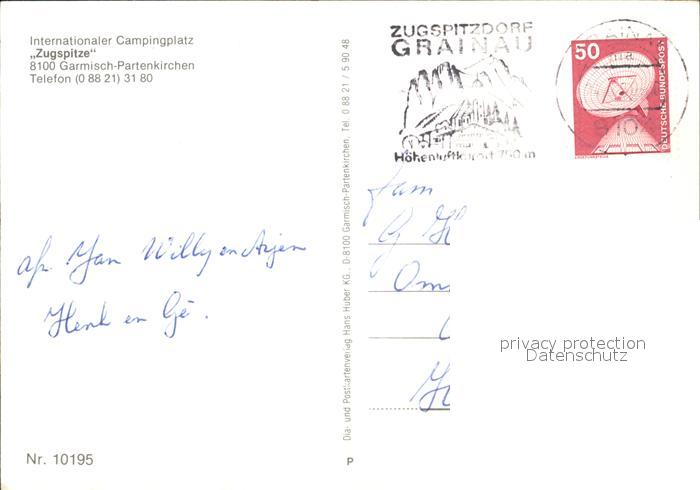 Internationaler Campingplatz
„Zugspitze"
8100 Garmisch-Partenkirchen
Telefon (0 88 21) 31 80
ZUGSPITZDORF
GRAINAU
Höhenluftkurort 750 m
50
DEUTSCHE BUNDESPOST
Dia- und Postkartenverlag Hans Huber KG., D-8100 Garmisch-Partenkirchen, Tel. 0 88 21 / 5 90 48
afz. Jan Willy en Arjen
Henk en Gé.
fam
G H
Om
privacy protection
Datenschutz
Nr. 10195
P